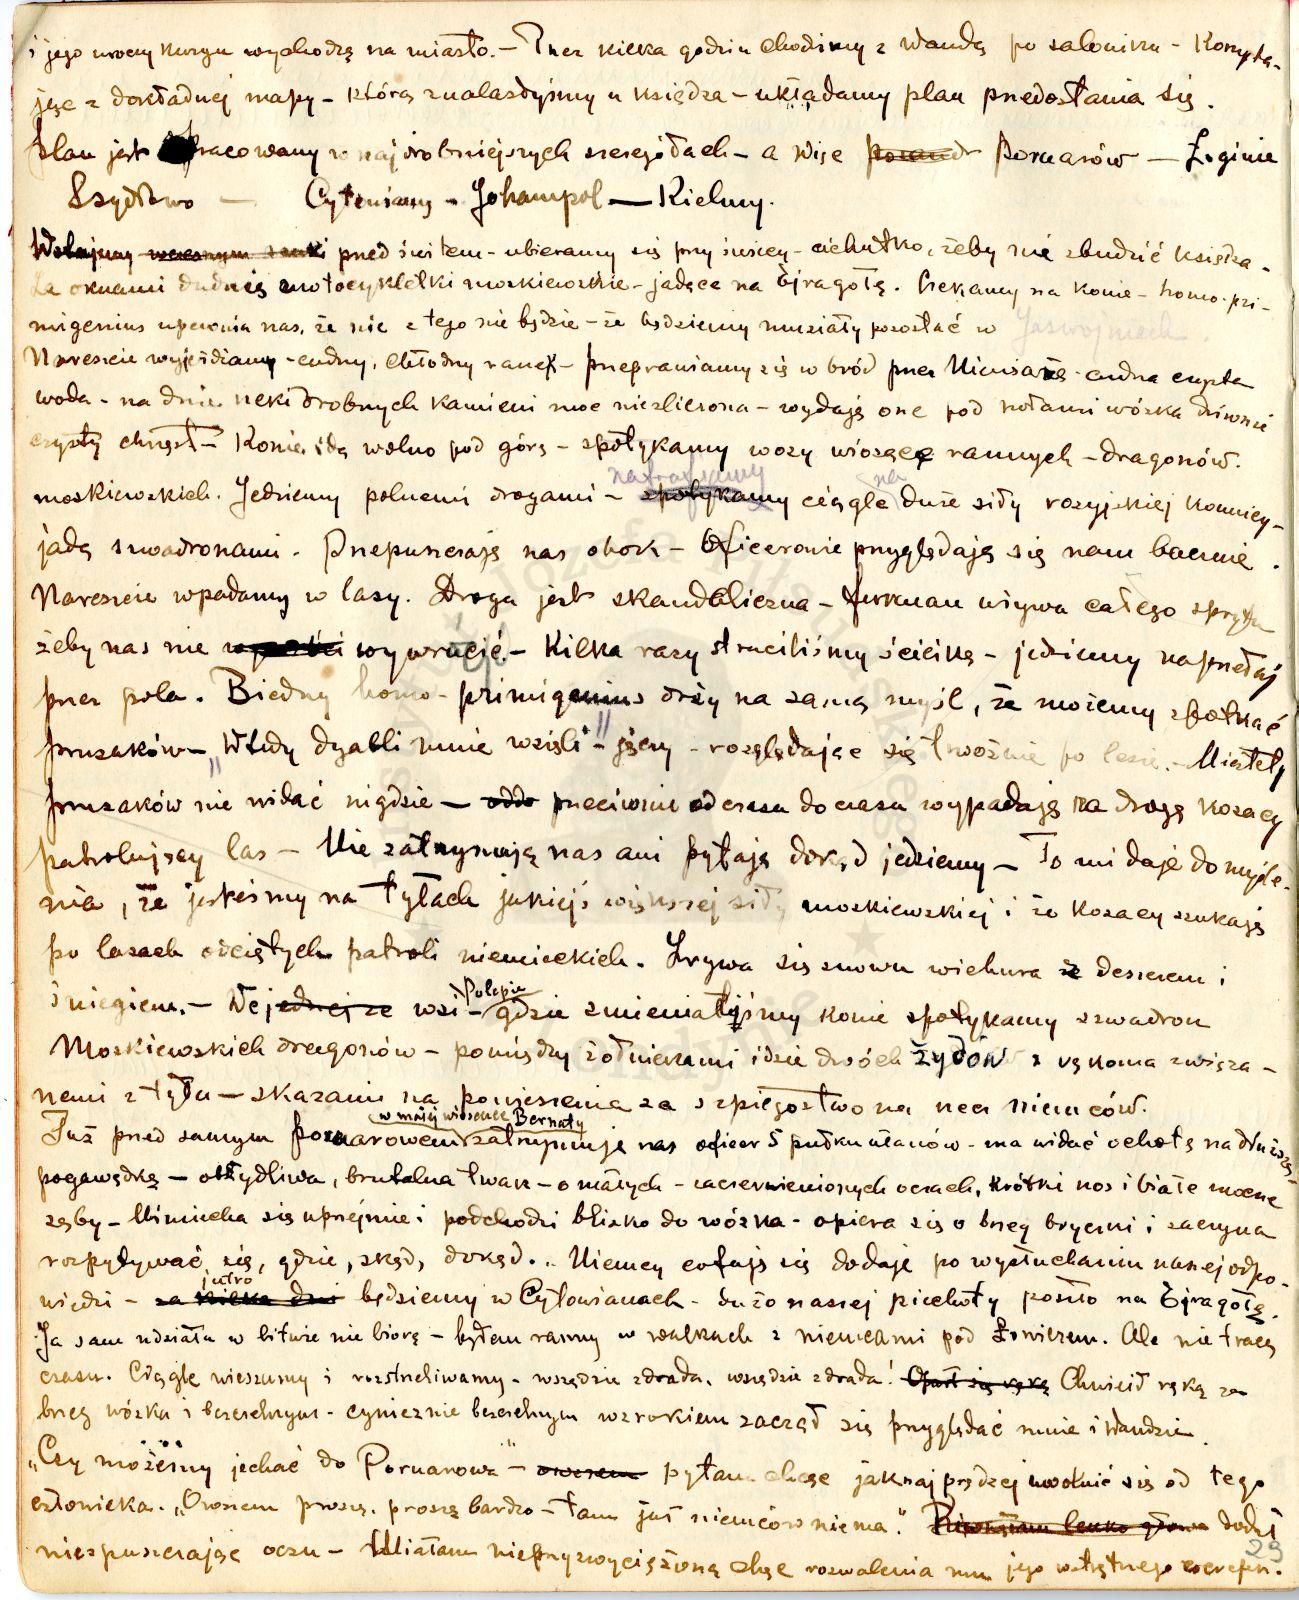 i jego uroczy kuzyn wychodzą na miasto. – Przez kilka godzin chodzimy z Wandą po saloniku – Korzysta-
jąc z dokładnej mapy – którą znalazłyśmy u księdza – układamy plan przedostania się.
Plan jest opracowany w najdrobniejszych szczegółach – a więc Poruarów — Żoginie
Szydłowo — Cytowiany – Johampol — Kielmy.
pred świtem – ubieramy się przy świecy – cichutko, żeby nie zbudzić księdza –
Za oknami dudnią motocykletki moskiewskie – jadące na Ejragołę. Czekamy na konie – homo-pri-
migenius upewnia nas, że nic z tego nie będzie – że będziemy musiały pozostać w Jaswojniach.
Nareszcie wyjeżdżamy – cudny, chłodny ranek – przeprawiamy się w bród przez Niewiażę – cudna czysta
woda – na dnie rzeki drobnych kamieni moc niezliczona – wydają one pod kołami wózka dziwnie
czysty chrzęst – Konie idą wolno pod górę – spotykamy wozy wiozące rannych – dragonów
moskiewskich. Jedziemy polnemi drogami – natrafiamy ciągle na duże siły rosyjskiej konnicy –
jadą szwadronami. Przepuszczają nas obok – Oficerowie przyglądają się nam bacznie.
Nareszcie wpadamy w lasy. Droga jest skandaliczna – furman używa całego sprytu
żeby nas nie wywrócić. – Kilka razy straciliśmy ścieżkę – jedziemy naprzełaj
przez pola. Biedny homo-primigenius drży na samą myśl, że możemy spotkać
prusaków – „Wtedy dyabli mnie wzięli” – jęczy – rozglądając się trwożnie po lesie. – Niestety
prusaków nie widać nigdzie — przeciwnie od czasu do czasu wypadają na drogę kozacy
patrolujący las – Nie zatrzymują nas ani pytają dokąd jedziemy – To mi daje do myśle-
nia, że jesteśmy na tyłach jakiejś większej siły moskiewskiej i że kozacy szukają
po lasach odciętych patroli niemieckich. Zrywa się znowu wichura z deszczem i
śniegiem. – We wsi – Polepie gdzie zmieniałyśmy konie spotykamy szwadron
Moskiewskich dragonów – pomiędzy żołnierzami idzie dwóch żydów z rękoma związa-
nemi z tyłu — skazani na powieszenie za szpiegostwo na rzecz niemców.
Już przed samym Poruarowem w małej wiosence Bernaty zatrzymuje nas oficer 5 pułku ułanów – ma widać ochotę na dłuższą
pogawędkę – obrzydliwa, brutalna twarz – o małych – zaczerwienionych oczach, krótki nos i białe mocne
zęby – Uśmiecha się uprzejmie i podchodzi blisko do wózka – opiera się o brzeg bryczki i zaczyna
rozpytywać się, gdzie, skąd, dokąd... Niemcy cofają się dodaje po wysłuchaniu naszej odpo-
wiedzi – jutro będziemy w Cytowianach – dużo naszej piechoty poszło na Ejragołę.
Ja sam udziału w bitwie nie biorę – byłem ranny w walkach z niemcami pod Łowiczem. Ale nie tracę
czasu. Ciągle wieszamy i rozstreliwamy – wszędzie zdrada, wszędzie zdrada! Chwicił ręką za
brzeg wózka i bezczelnym – cynicznie bezczelnym wzrokiem zaczął się przyglądać mnie i Wandzie.
„Czy możemy jechać do Poruarowa” – pytam chcąc jaknajprędzej uwolnić się od tego
człowieka. „Owszem proszę, proszę bardzo – tam już niemców niema.” dodał
niespuszczając oczu – Miałam nieprzyzwyciężoną chęć rozwalenia mu jego wstrętnego czerepu.
23